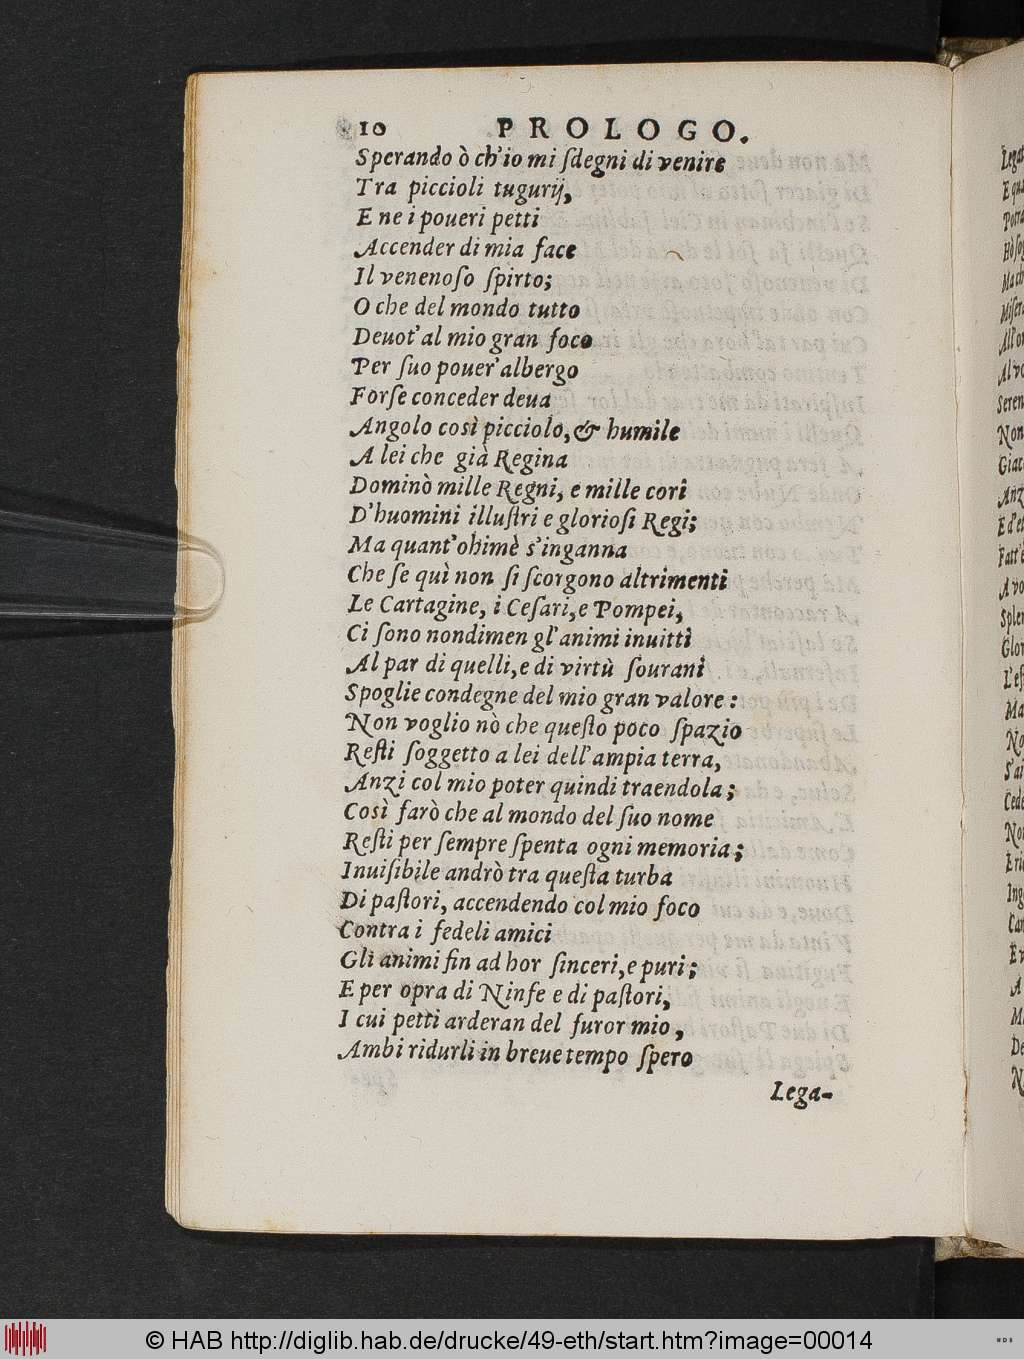 10 PROLOGO.
Sperando ò ch'io mi ſdegni di venire
Tra piccioli tugurij,
E ne i poueri petti
Accender di mia face
Il venenoſo ſpirto;
O che del mondo tutto
Deuot'al mio gran foco
Per ſuo pouer'albergo
Forſe conceder deua
Angolo così picciolo, & humile
A lei che già Regina
Dominò mille Regni, e mille cori
D'huomini illuſtri e glorioſi Regi;
Ma quant'ohimè s'inganna
Che ſe quì non ſi ſcorgono altrimenti
Le Cartagine, i Ceſari, e Pompei,
Ci ſono nondimen gl'animi inuitti
Al par di quelli, e di virtù ſourani
Spoglie condegne del mio gran valore:
Non voglio nò che queſto poco ſpazio
Reſti ſoggetto a lei dell'ampia terra,
Anzi col mio poter quindi traendola;
Così farò che al mondo del ſuo nome
Reſti per ſempre ſpenta ogni memoria;
Inuiſibile andrò tra queſta turba
Di paſtori, accendendo col mio foco
Contra i fedeli amici
Gli animi fin ad hor ſinceri, e puri;
E per opra di Ninfe e di paſtori,
I cui petti arderan del furor mio,
Ambi ridurli in breue tempo ſpero
Lega-
© HAB http://diglib.hab.de/drucke/49-eth/start.htm?image=00014